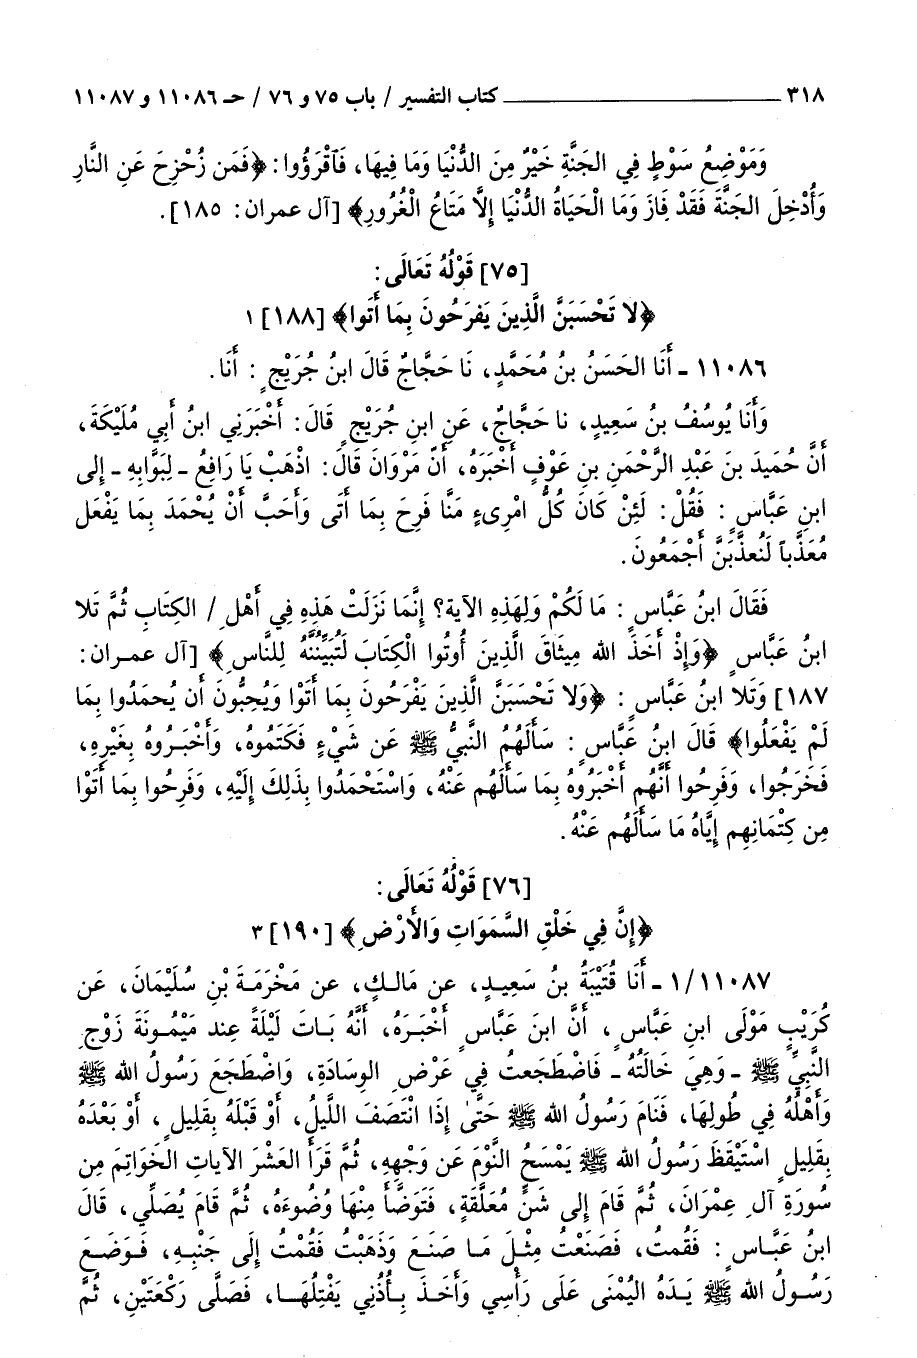 ٣١٨ ــــــــــــــــــــ كتاب التفسير / باب ٧٥ و ٧٦ / حـ ١١٠٨٦ و ١١٠٨٧
وَمَوْضِعُ سَوْطٍ فِي الجَنَّةِ خَيْرٌ مِنَ الدُّنْيَا وَمَا فِيهَا، فَاقْرَؤُوا: ﴿فَمَن زُحْزِحَ عَنِ النَّارِ
وَأُدْخِلَ الجَنَّةَ فَقَدْ فَازَ وَمَا الْحَيَاةُ الدُّنْيَا إِلَّا مَتَاعُ الْغُرُورِ﴾ [آل عمران: ١٨٥].
[٧٥] قَوْلُهُ تَعَالَى:
﴿لا تَحْسَبَنَّ الَّذِينَ يَفرَحُونَ بِمَا أَتَوا﴾ [١٨٨] ١
١١٠٨٦ ـ أَنَا الحَسَنُ بنُ مُحَمَّدٍ، نَا حَجَّاجٌ قَالَ ابنُ جُرَيْجٍ: أَنَا.
وَأَنَا يُوسُفُ بنُ سَعِيدٍ، نا حَجَّاجٌ، عَنِ ابنِ جُرَيْجٍ قَالَ: أَخْبَرَنِي ابنُ أَبِي مُلَيْكَةَ،
أَنَّ حُمَيدَ بنَ عَبْدِ الرَّحْمَنِ بنِ عَوْفٍ أَخْبَرَهُ، أَنَّ مَرْوَانَ قَالَ: اذْهَبْ يَا رَافِعُ ـ لِبَوَّابِهِ ـ إِلى
ابنِ عَبَّاسٍ: فَقُلْ: لَئِنْ كَانَ كُلُّ امْرِىءٍ مَنَّا فَرِحَ بِمَا أَتَى وَأَحَبَّ أَنْ يُحْمَدَ بِمَا يَفْعَل
مُعَذَّباً لَنُعذَّبَنَّ أَجْمَعُونَ.
فَقَالَ ابنُ عَبَّاسٍ: مَا لَكُمْ وَلِهَذِهِ الآية؟ إِنَّمَا نَزَلَتْ هَذِهِ فِي أَهْلِ / الكِتَابِ ثُمَّ تَلا
ابنُ عَبَّاسٍ ﴿وَإِذْ أَخَذَ الله مِيثَاقَ الَّذِينَ أُوتُوا الْكِتَابَ لَتُبَيِّنُنَّهُ لِلنَّاسِ﴾ [آل عمران:
١٨٧] وَتَلا ابنُ عَبَّاسٍ: ﴿وَلا تَحْسَبَنَّ الَّذِينَ يَفْرَحُونَ بِمَا أَتَوْا وَيُحِبُّونَ أَن يُحمَدُوا بِمَا
لَمْ يَفْعَلُوا﴾ قَالَ ابنُ عَبَّاسٍ: سَأَلَهُمُ النَّبِيُّ ﷺ عَن شَيْءٍ فَكَتَمُوهُ، وَأَخْبَرُوهُ بِغَيْرِهِ،
فَخَرَجُوا، وَفَرِحُوا أَنَّهُم أَخْبَرُوهُ بِمَا سَأَلَهُم عَنْهُ، وَاسْتَحْمَدُوا بِذَلِكَ إِلَيْهِ، وَفَرِحُوا بِمَا أَتَوْا
مِن كِتْمَانِهِم إِيَّاهُ مَا سَأَلَهُم عَنْهُ.
[٧٦] قَوْلُهُ تَعَالَى:
﴿إِنَّ فِي خَلْقِ السَّمَوَاتِ وَالأَرْضِ﴾ [١٩٠] ٣
١/١١٠٨٧ ـ أَنَا قُتَيْبَةُ بنُ سَعِيدٍ، عن مَالكٍ، عن مَخْرَمَةَ بْنِ سُلَيْمَانَ، عَن
كُرَيْبٍ مَوْلَى ابنِ عَبَّاسٍ، أَنَّ ابنَ عَبَّاسٍ أَخْبَرَهُ، أَنَّهُ بَاتَ لَيْلَةً عِند مَيْمُونَةَ زَوْجِ
النَّبِيِّ ﷺ ـ وَهِيَ خَالَتُهُ ـ فَاضْطَجَعتُ فِي عَرْضِ الوِسَادَةِ، وَاضْطَجَعَ رَسُولُ الله ﷺ
وَأَهْلُهُ فِي طُولِهَا، فَنَامَ رَسُولُ الله ﷺ حَتَّى إِذَا انْتَصَفَ اللَّيلُ، أَوْ قَبْلَهُ بِقَلِيلٍ، أَوْ بَعْدَهُ
بِقَلِيلٍ اسْتَيْقَظَ رَسُولُ الله ﷺ يَمْسَحُ النَّوْمَ عَن وَجْهِهِ، ثُمَّ قَرَأَ العَشْرَ الآيَاتِ الخَوَاتِمَ مِن
سُورَةِ آلِ عِمْرَانَ، ثُمَّ قَامَ إِلى شَنٍّ مُعَلَّقَةٍ، فَتَوَضَّأَ مِنْهَا وُضُوءَهُ، ثُمَّ قَامَ يُصَلِّي، قَالَ
ابنُ عَبَّاسٍ: فَقُمتُ، فَصَنَعْتُ مِثْلَ مَا صَنَعَ وَذَهَبْتُ فَقُمْتُ إِلَى جَنْبِهِ، فَوَضَعَ
رَسُولُ الله ﷺ يَدَهُ اليُمْنَى عَلَى رَأْسِي وَأَخَذَ بِأُذُنِي يَفْتِلُهَا، فَصَلَّى رَكْعَتَيْنِ، ثُمَّ